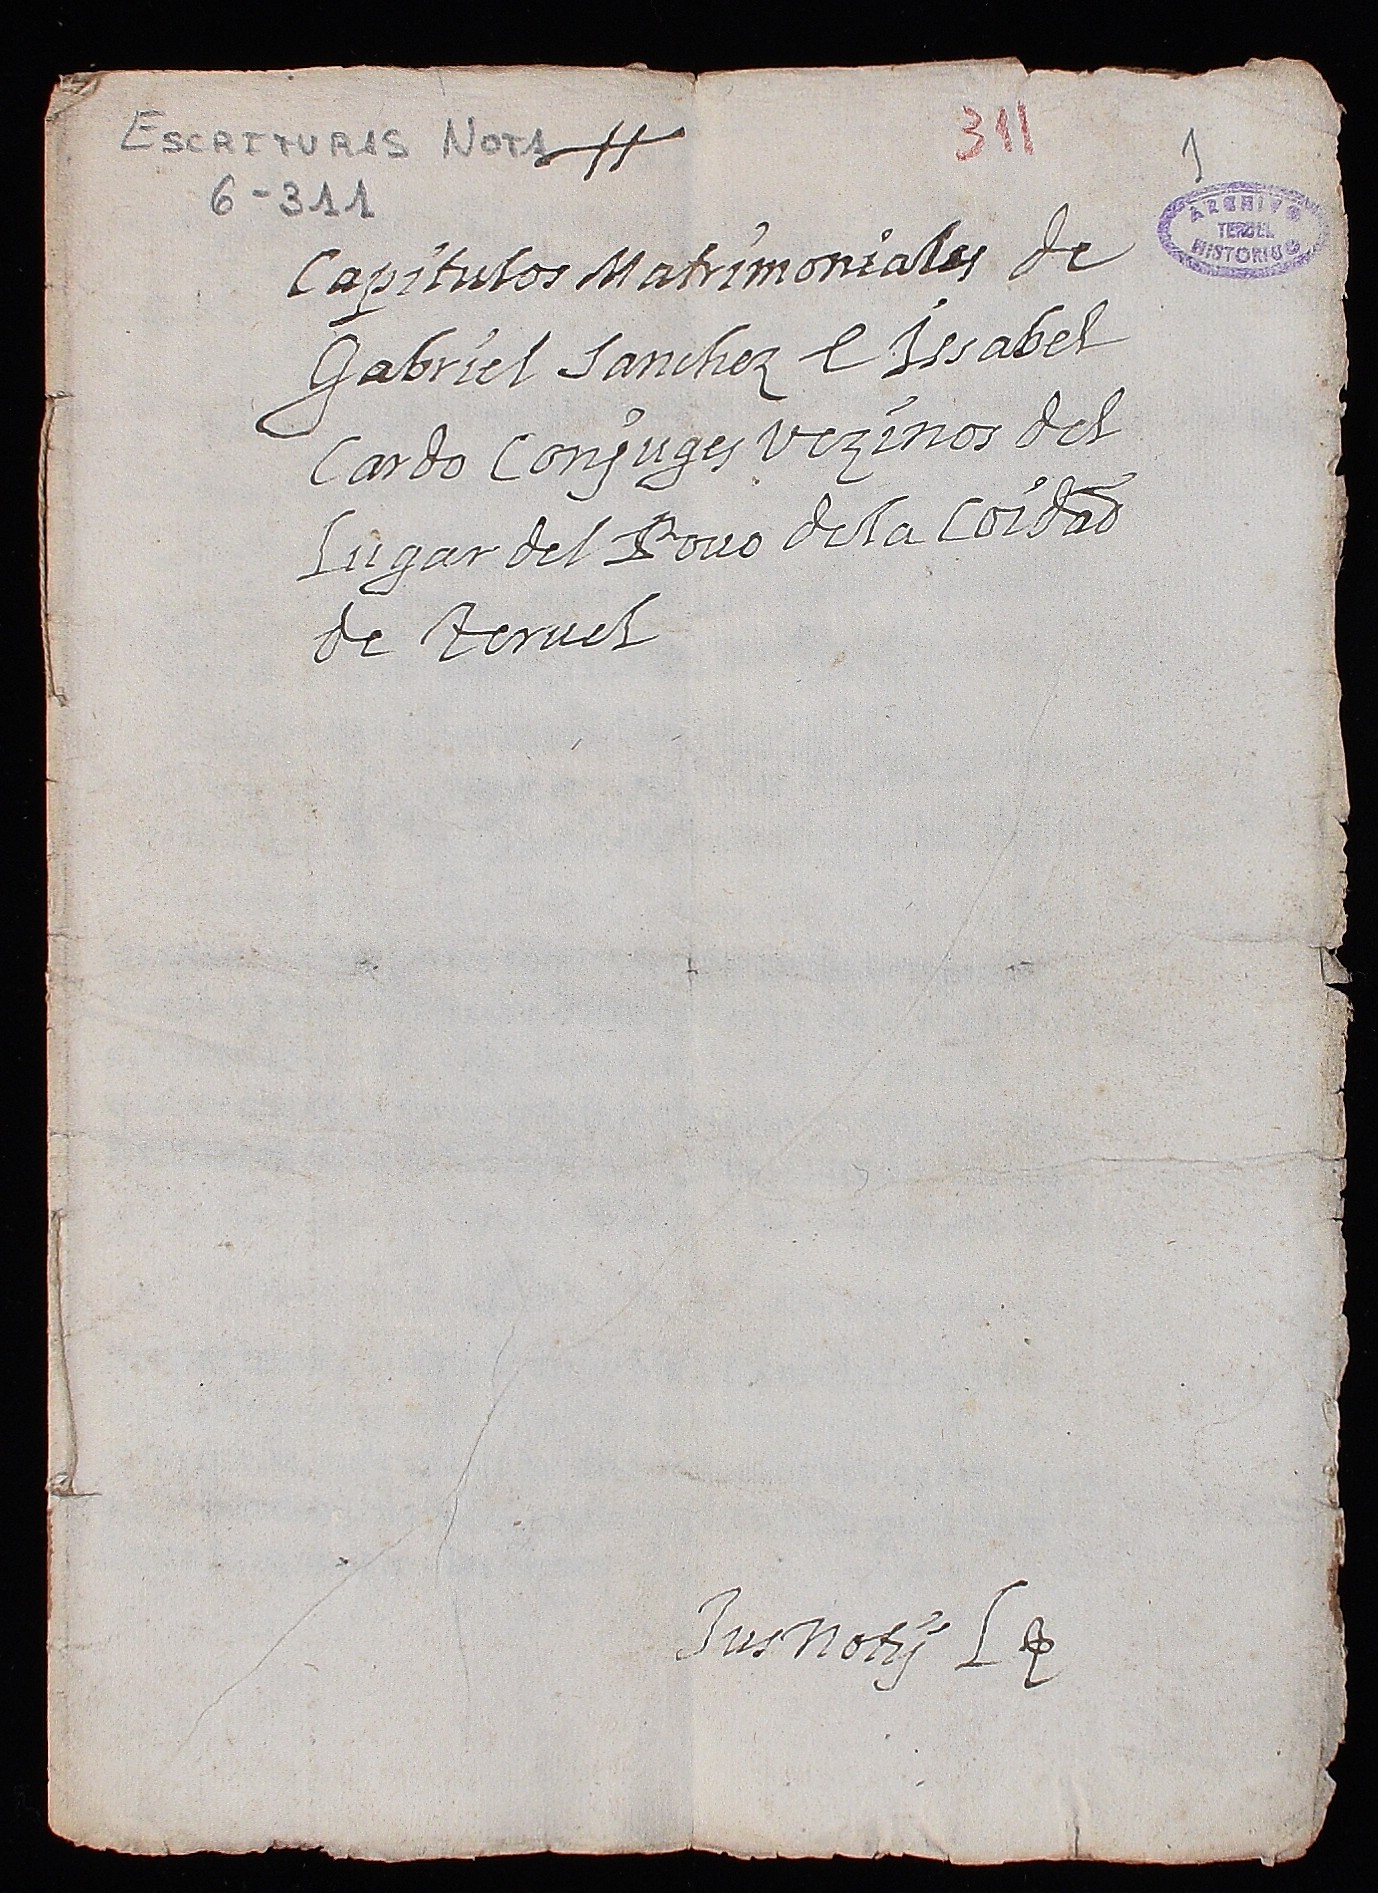 ESCRITURAS NOTS
311
1
6-311
ARCHIVO
TERUEL
HISTORICO
Capitulos Matrimoniales de
Gabriel Sanchez e Issabel
Cardo Conjuges Vezinos del
Lugar del Pouo de la Coidad
de Teruel
Jus Notij